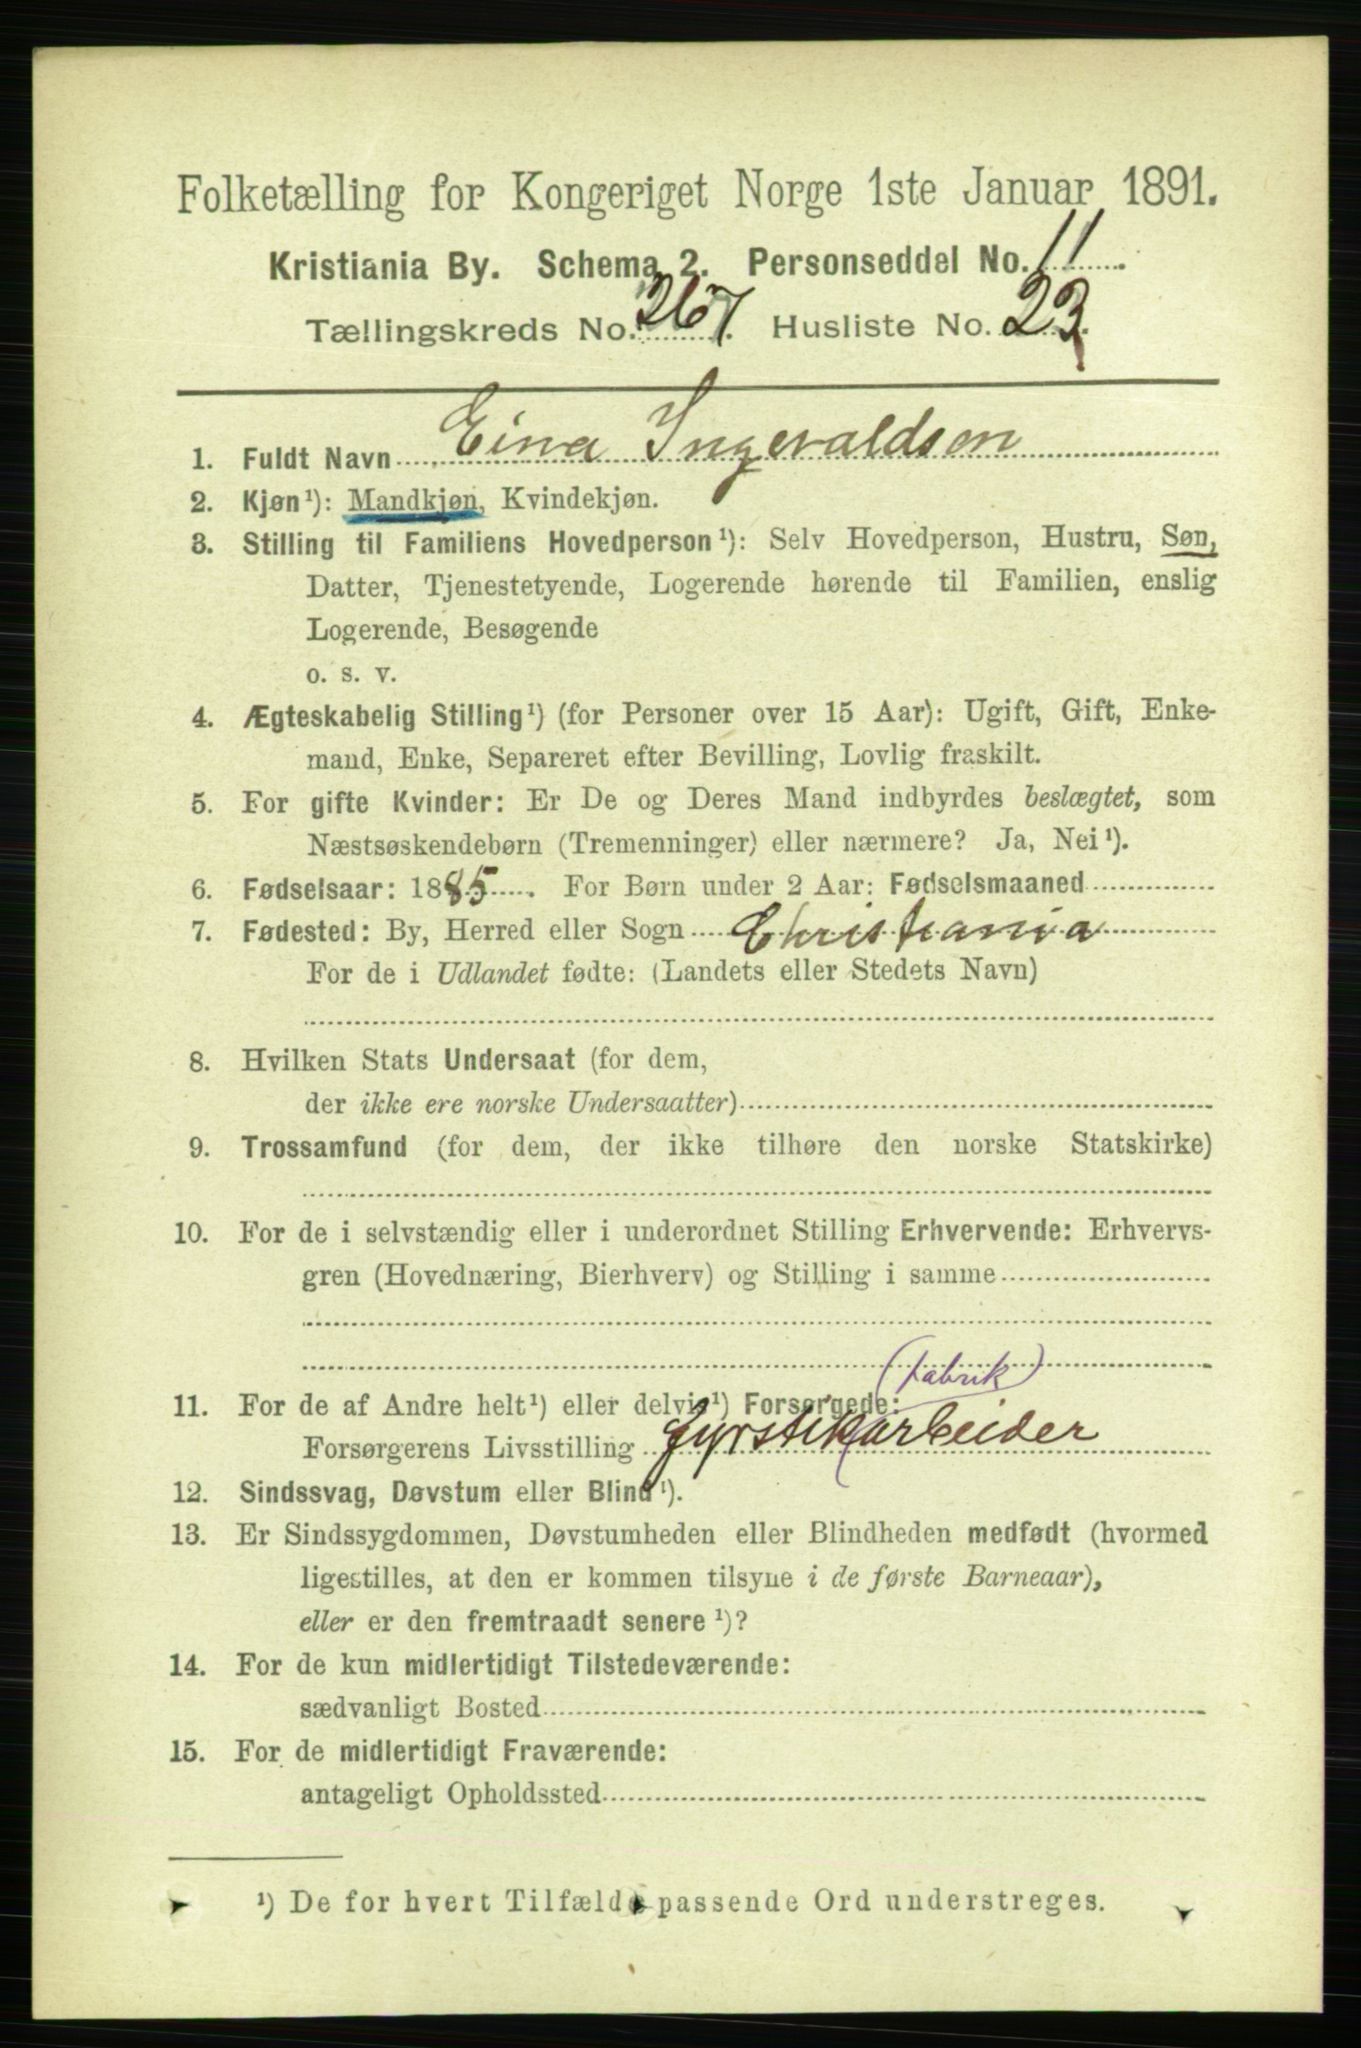 Folketælling for Kongeriget Norge 1ste Januar 1891.
Kristiania By. Schema 2. Personseddel No. 11.
Tællingskreds No. 267. Husliste No. 23.
1. Fuldt Navn Einar Ingevaldsen
2. Kjøn¹): Mandkjøn, Kvindekjøn.
3. Stilling til Familiens Hovedperson¹): Selv Hovedperson, Hustru, Søn,
Datter, Tjenestetyende, Logerende hørende til Familien, enslig
Logerende, Besøgende
o. s. v.
4. Ægteskabelig Stilling¹) (for Personer over 15 Aar): Ugift, Gift, Enke-
mand, Enke, Separeret efter Bevilling, Lovlig fraskilt.
5. For gifte Kvinder: Er De og Deres Mand indbyrdes beslægtet, som
Næstsøskendebørn (Tremenninger) eller nærmere? Ja, Nei¹).
6. Fødselsaar: 1885. For Børn under 2 Aar: Fødselsmaaned
7. Fødested: By, Herred eller Sogn Christiania
For de i Udlandet fødte: (Landets eller Stedets Navn)
8. Hvilken Stats Undersaat (for dem,
der ikke ere norske Undersaatter)
9. Trossamfund (for dem, der ikke tilhøre den norske Statskirke)
10. For de i selvstændig eller i underordnet Stilling Erhvervende: Erhvervs-
gren (Hovednæring, Bierhverv) og Stilling i samme
(fabrik)
11. For de af Andre helt¹) eller delvis¹) Forsørgede:
Forsørgerens Livsstilling fyrstikarbeider
12. Sindssvag, Døvstum eller Blind¹).
13. Er Sindssygdommen, Døvstumheden eller Blindheden medfødt (hvormed
ligestilles, at den er kommen tilsyne i de første Barneaar),
eller er den fremtraadt senere¹)?
14. For de kun midlertidigt Tilstedeværende:
sædvanligt Bosted
15. For de midlertidigt Fraværende:
antageligt Opholdssted
¹) De for hvert Tilfælde passende Ord understreges.